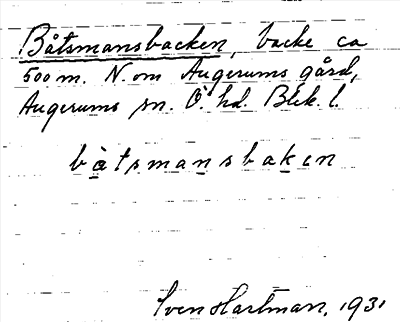 Båtsmansbacken, backe ca
500 m. N. om Augerums gård,
Augerums sn. Ö. hd. Blek. l.
båtsmansbaken
Sven Hartman, 1931